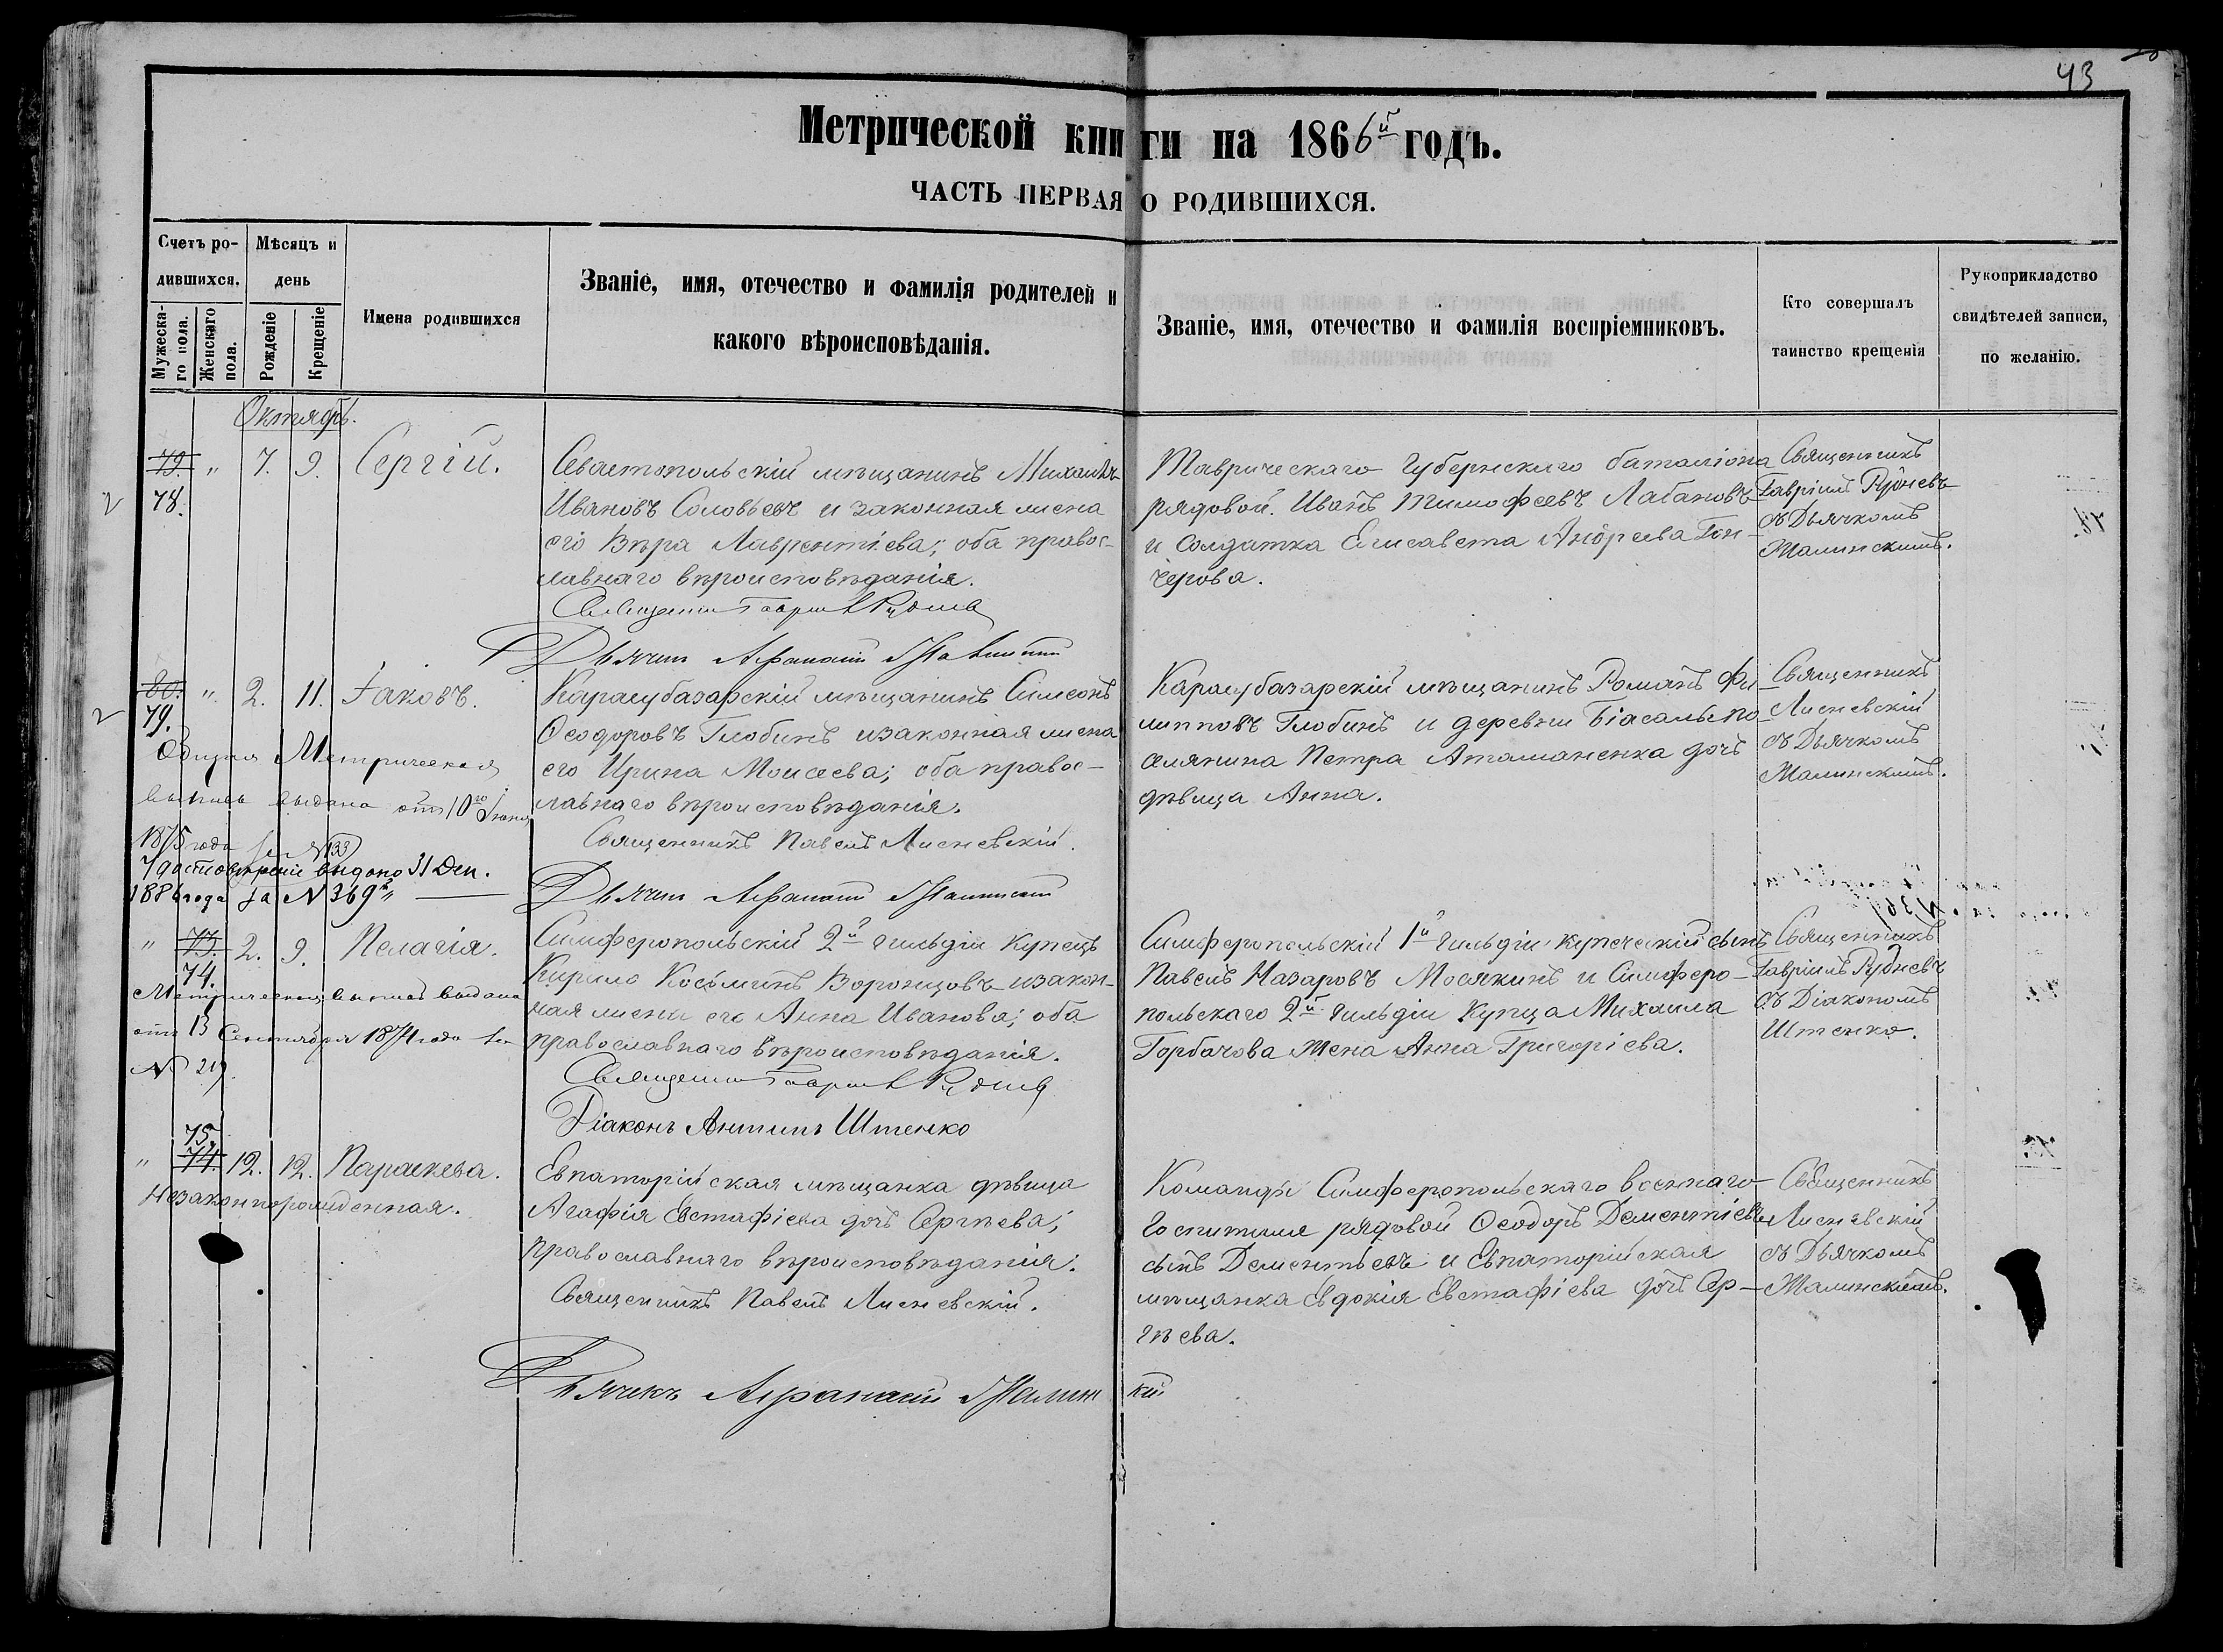 43
Метрической книги на 1866й годъ.
ЧАСТЬ ПЕРВАЯ О РОДИВШИХСЯ.
Счетъ ро-
дившихся.
Мужеска-
го пола.
Женскаго
пола.
Мѣсяцъ и
день
Рожденіе
Крещеніе
Имена родившихся
Званіе, имя, отечество и фамилія родителей и
какого вѣроисповѣданія.
Званіе, имя, отечество и фамилія воспріемниковъ.
Кто совершалъ
таинство крещенія
Рукоприкладство
свидѣтелей записи,
по желанію.
Октябрь.
79. " 7. 9. Сергій.
78.
Севастопольскій мѣщанинъ Михаилъ
Ивановъ Соловьевъ и законная жена
его Вѣра Лаврентіева; оба правос-
лавнаго вѣроисповѣданія.
Священникъ Гавріилъ Рудневъ
Дьячекъ Афанасій Малинскій
Таврическаго Губернскаго баталіона
рядовой Иванъ Тимофеевъ Лабановъ
и Солдатка Елисавета Андреева Гон-
черова.
Священникъ
Гавріилъ Рудневъ
съ Дьячкомъ
Малинскимъ.
80. " 2. 11. Іаковъ.
79.
Карасубазарскій мѣщанинъ Симеонъ
Ѳеодоровъ Глобинъ и законная жена
его Ирина Моисеева; оба правос-
лавнаго вѣроисповѣданія.
Священникъ Павелъ Лисневскій.
Дьячекъ Афанасій Малинскій
Метрическая
выпись выдана отъ 10го
1875 года за N 133
Удостовѣреніе выдано 31 Дек.
1886 года за N 369м
Карасубазарскій мѣщанинъ Романъ Фи-
липповъ Глобинъ и деревни Біасалы по-
селянина Петра Атаманенка дочь
дѣвица Анна.
Священникъ
Лисневскій
съ Дьячкомъ
Малинскимъ.
" 73. 2. 9. Пелагія.
74.
Метрическая выпись выдана
отъ 13 Сентября 1871 года за
N 219.
Симферопольскій 2й гильдіи купецъ
Кирило Косьминъ Воронцовъ и закон-
ная жена его Анна Иванова; оба
православнаго вѣроисповѣданія.
Священникъ Гавріилъ Рудневъ
Діаконъ Антипъ Штенко
Симферопольскій 1й гильдіи купеческій сынъ
Павелъ Назаровъ Мосякинъ и Симферо-
польскаго 2й гильдіи Купца Михаила
Горбачова жена Анна Григоріева.
Священникъ
Гавріилъ Рудневъ
съ Діакономъ
Штенко.
75.
" 74. 12. 12. Параскева.
Незаконнорожденная.
Евпаторійская мѣщанка дѣвица
Агафія Евстафіева дочь Сергѣева;
православнаго вѣроисповѣданія.
Священникъ Павелъ Лисневскій.
Дьячекъ Афанасій Малинскій
Команды Симферопольскаго военнаго
Госпиталя рядовой Ѳеодоръ Дементіевъ
сынъ Дементьевъ и Евпаторійская
мѣщанка Евдокія Евстафіева дочь Сер-
гѣева.
Священникъ
Лисневскій
съ Дьячкомъ
Малинскимъ.